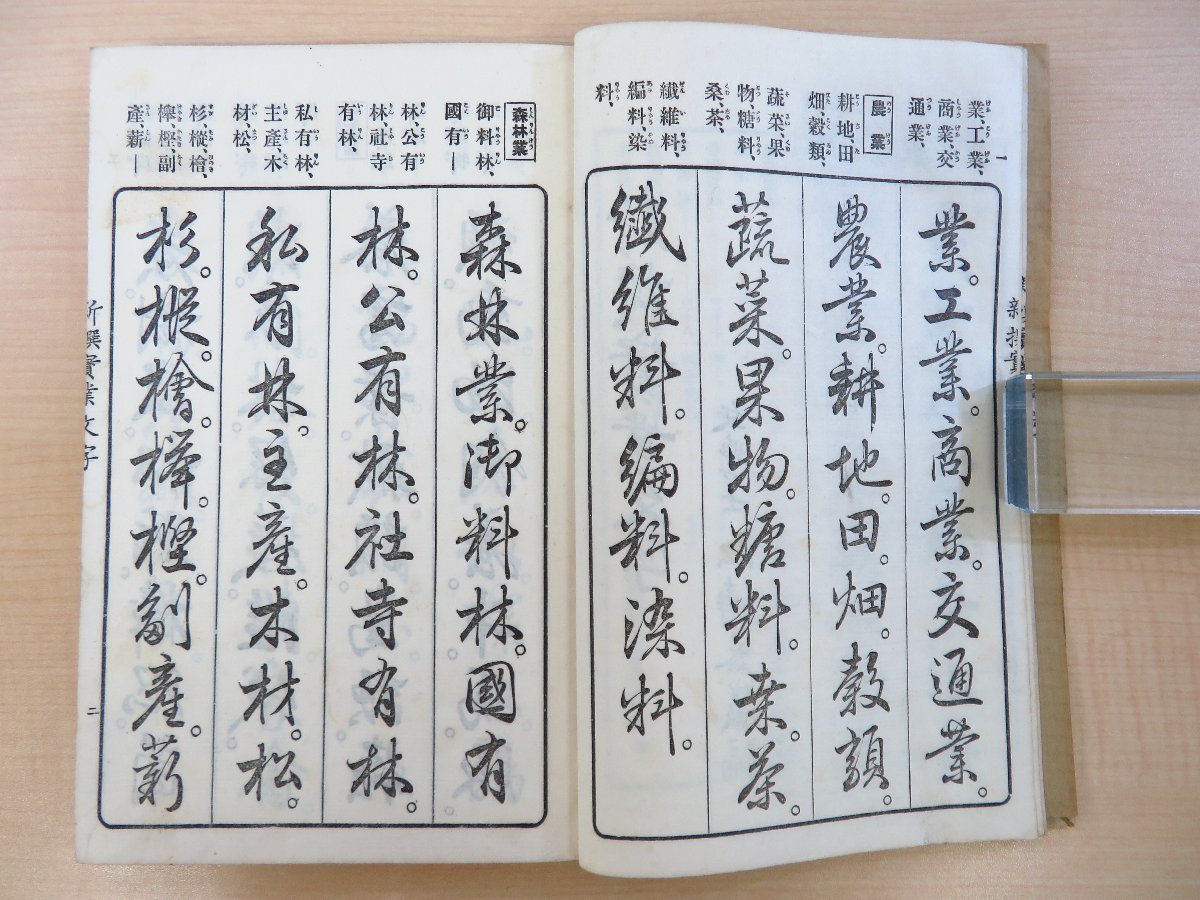 業、工業、
商業、交
通業、
農業
耕地田
畑穀類、
蔬菜、果
物、糖料、
桑、茶、
纎維料、
編料染
料、
業。工業。商業。交通業。
農業。耕地。田。畑。穀類。
蔬菜。果物。糖料。桒。茶。
纎維料。編料。染料。
一
新撰實
森林業
御料林、
國有―
林、公有
林社寺
有林、
私有林、
主產木
材松、
杉、樅、檜、
櫸、樫、副
產、薪―
森林業。御料林。國有
林。公有林。社寺有林。
私有林。主産。木材。松。
杉。樅。檜。櫸。樫。副産。薪
新撰實業文字
二